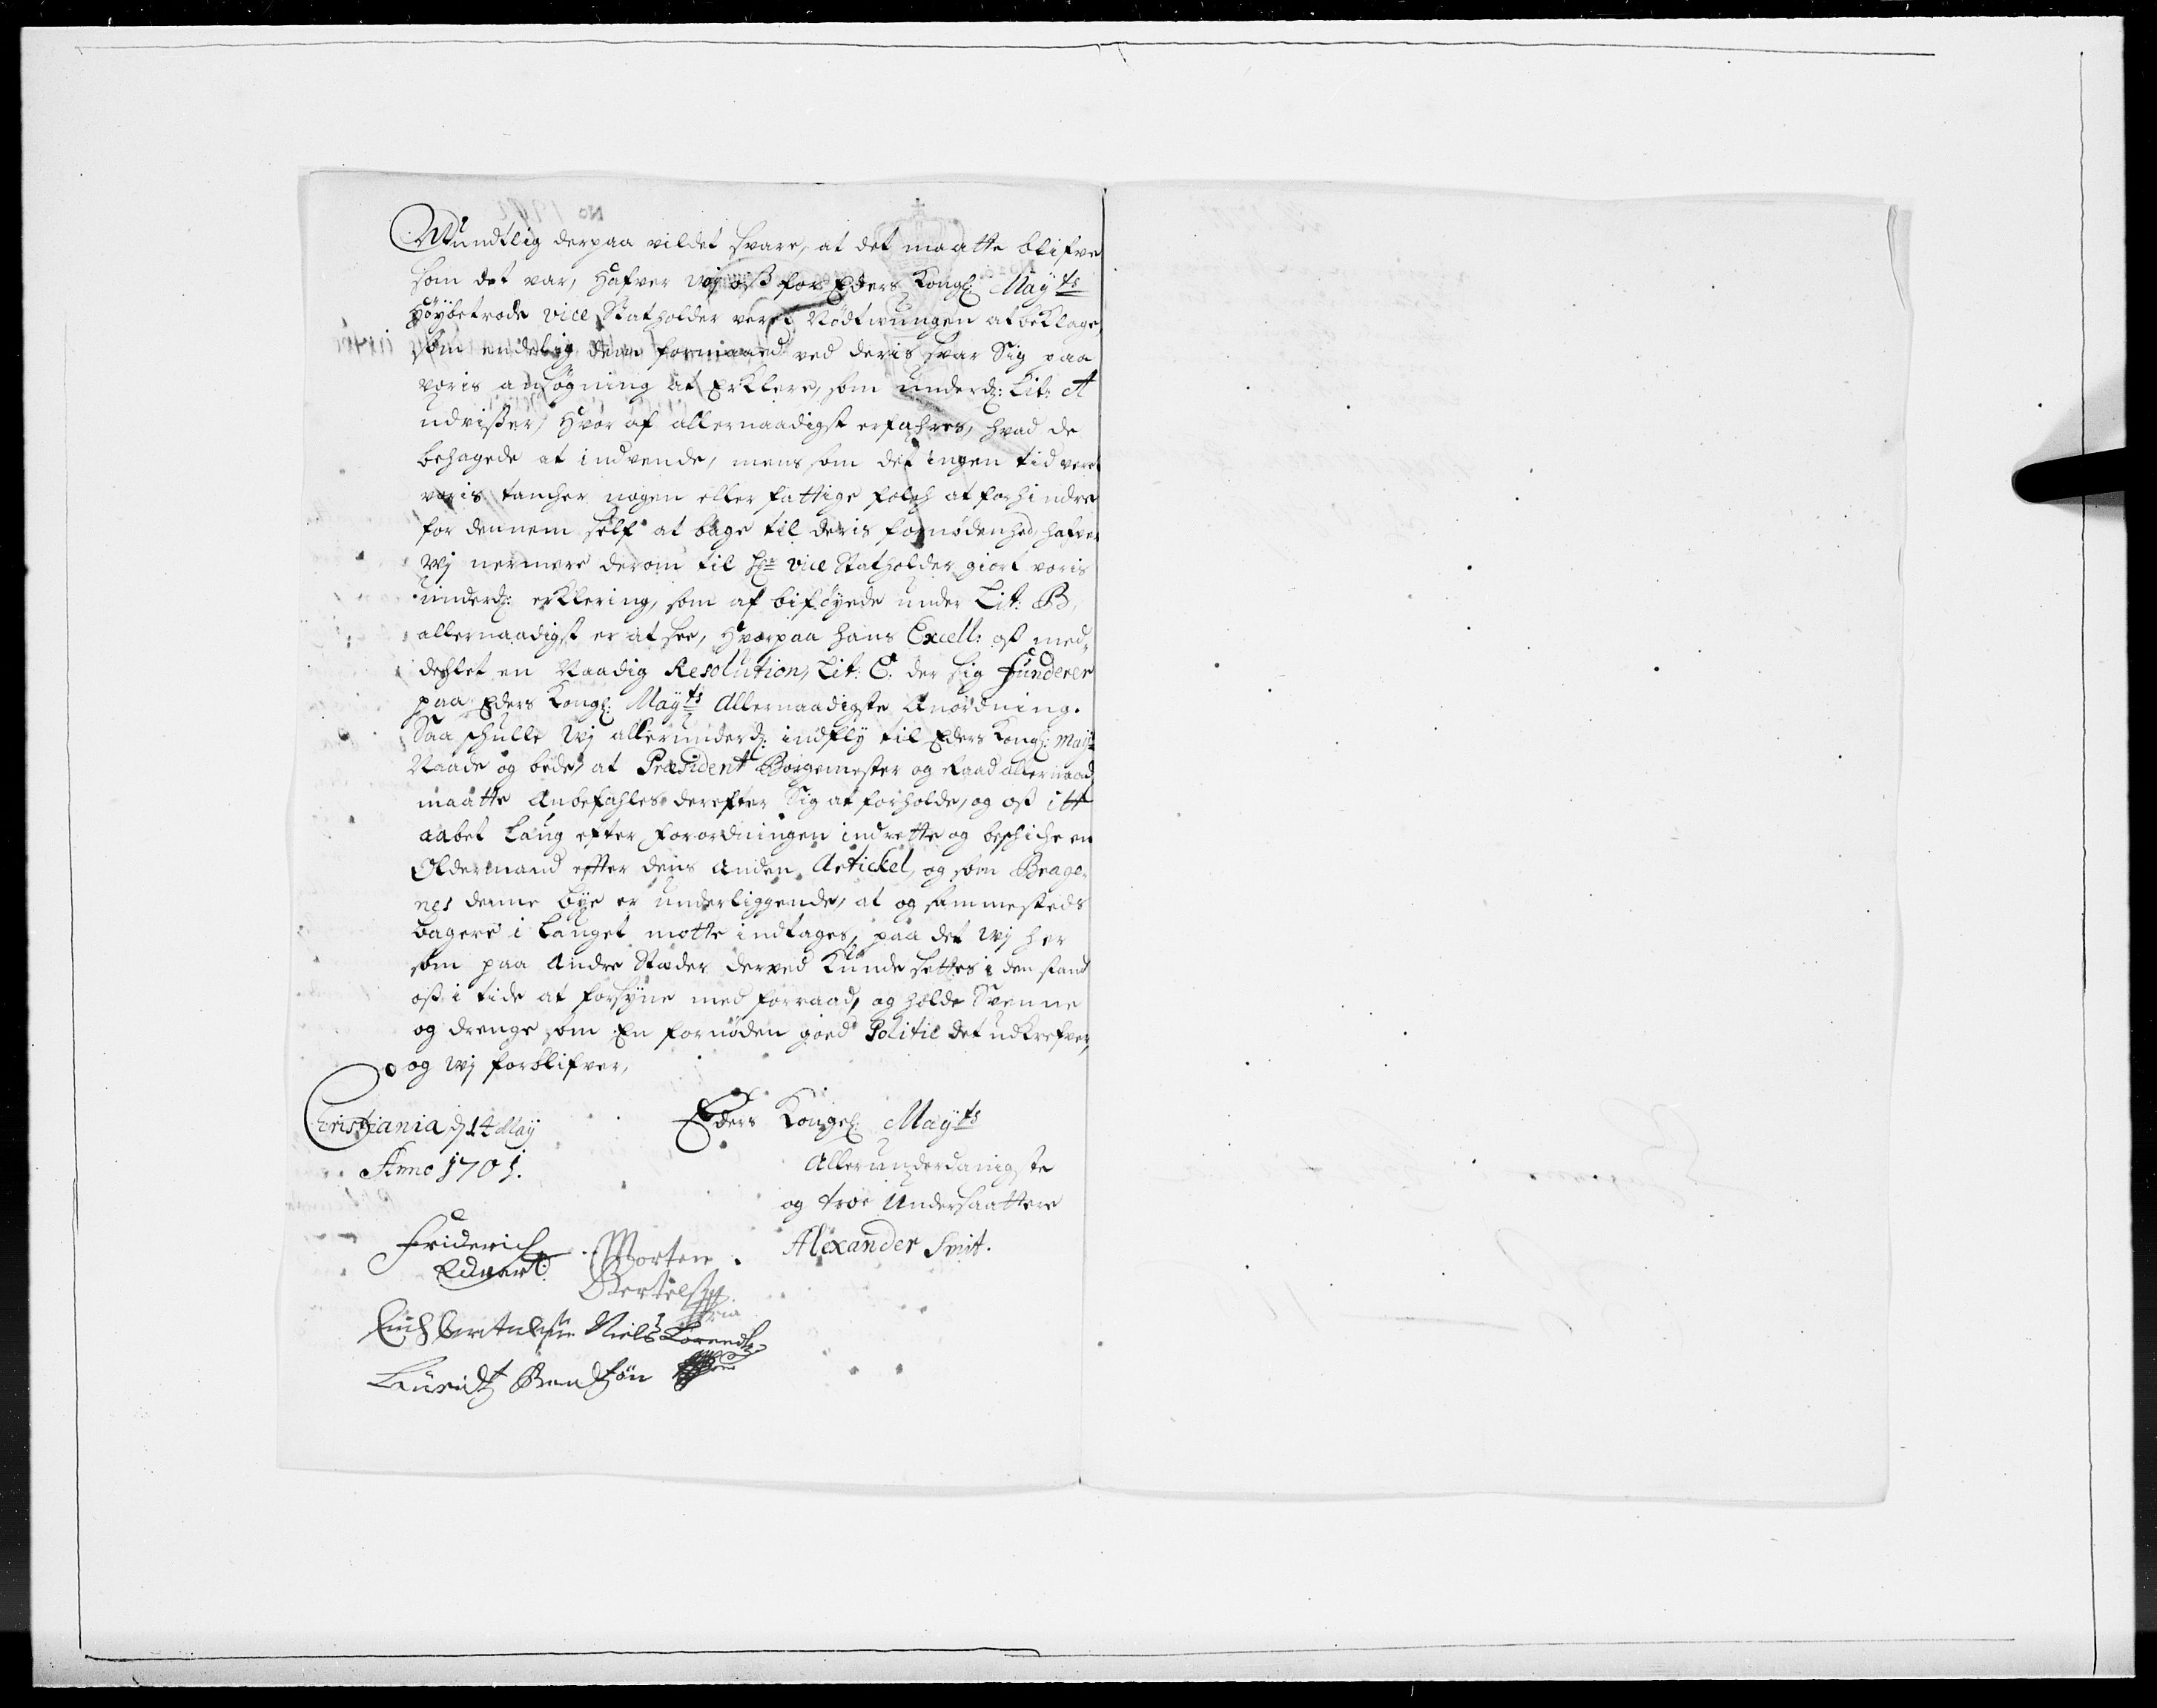 Mundtlig derpaa vildet svare, at det maatte blifve
som det var, Hafver wj oß for Eders Kongl: Mayts
Høybetrode vice Statholder veret Nødtwungen at beklage,
som endelig dem formaaed ved deris svar Sig paa
voris ansøgning at Erklere, som underd: Lit: A
udvisser, Hvor af allernaadigst erfahres, hvad de
behagede at indvende, mens som det ingen tid veret
voris tancher nogen eller fattige folch at forhindre
for dennem self at bage til deris fornødenhed, hafver
Wj nermere derom til Hr: vice Statholder giort voris
underd: erklering, som af biføyede under Lit: B,
allernaadigst er at see, Hvorpaa hans Excell: oß med-
deelet en Naadig Resolution, Lit: C. der sig funderer
paa Eders Kongl: Mayts Allernaadigste Anordning.
Saa schulle Wj allerunderd: indfly til Eders Kongl: Mayts
Naade og bede, at Præsident Borgemester og Raad allernaad:
maatte Anbefahles derefter Sig at forholde, og oß itt
aabet Laug efter forordningen indrette og beschiche en
Oldermand effter dens Anden Artickel, og som Brage-
nes denne bye er underliggende, at og sammesteds
bagere i Lauget motte indtages, paa det Wj her
som paa Andre Stæder derved kunde settes i den stand
oß i tide at forsyne med forraad, og holde Svenne
og drenge som En fornøden goed Politie det udkrefver,
og Wj forblifver,
Christiania d 14 May
Anno 1701.
Eders Kongel: Mayts
Allerunderdanigste
og troe Undersaattere
Friderich
Edvart
Morten
Bertelsen
Alexander Smit.
Niels Lorendtz
Lauridtz Bendtzøn